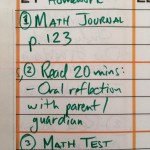 Homework
① MATH JOURNAL
p. 123
② Read 20 mins:
- Oral reflection
with parent/
guardian
③ MATH TEST